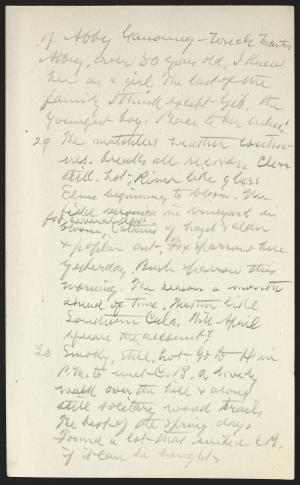 of Abby
Abby, over 50 years old, I knew
her as a girl, the last of the
family I think except Gib, the
youngest boy. Peace to her ashes.
29 The matchless weather contin-
ues. breaks all records. Clear
still. hot. River like glass
Elms beginning to bloom. The
little veronica in vineyard in
bloom, for several days Catkins of hazel & alder
& poplar out. Fox sparrow here
yesterday, Bush sparrow this
morning. The season a month
ahead of time. Weather like
Southern Cala. Will April
square the account?
30 Smoky, still, hot. Go to H in
P.M. to meet C.B. a lovely
walk over the hill & along
still solitary wood roads,
The best of the spring days
Found a lot that suited C.B.
if it can be bought.